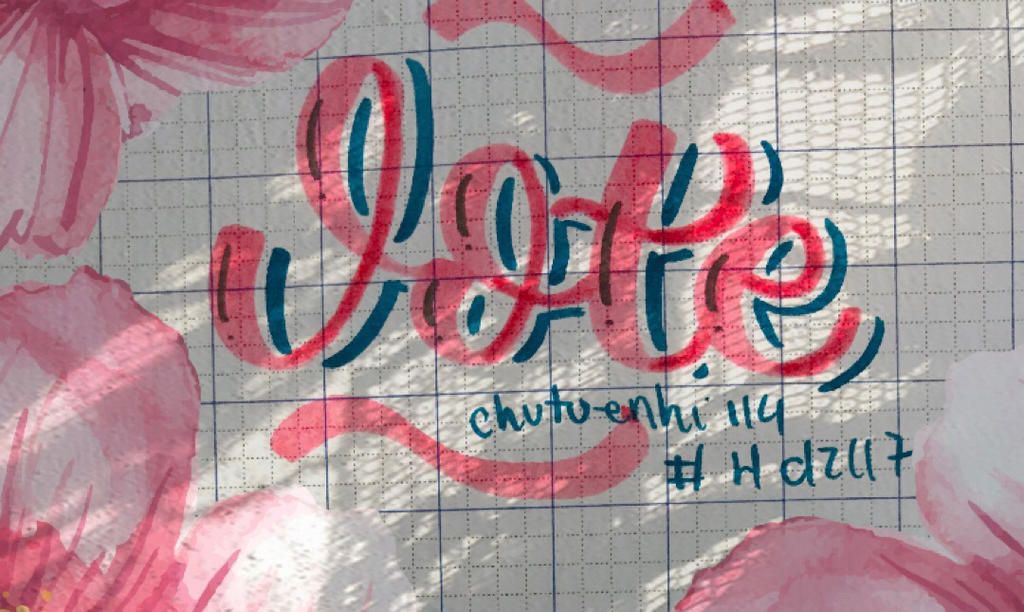 Vote
chutu-enhi 114
# H d2117